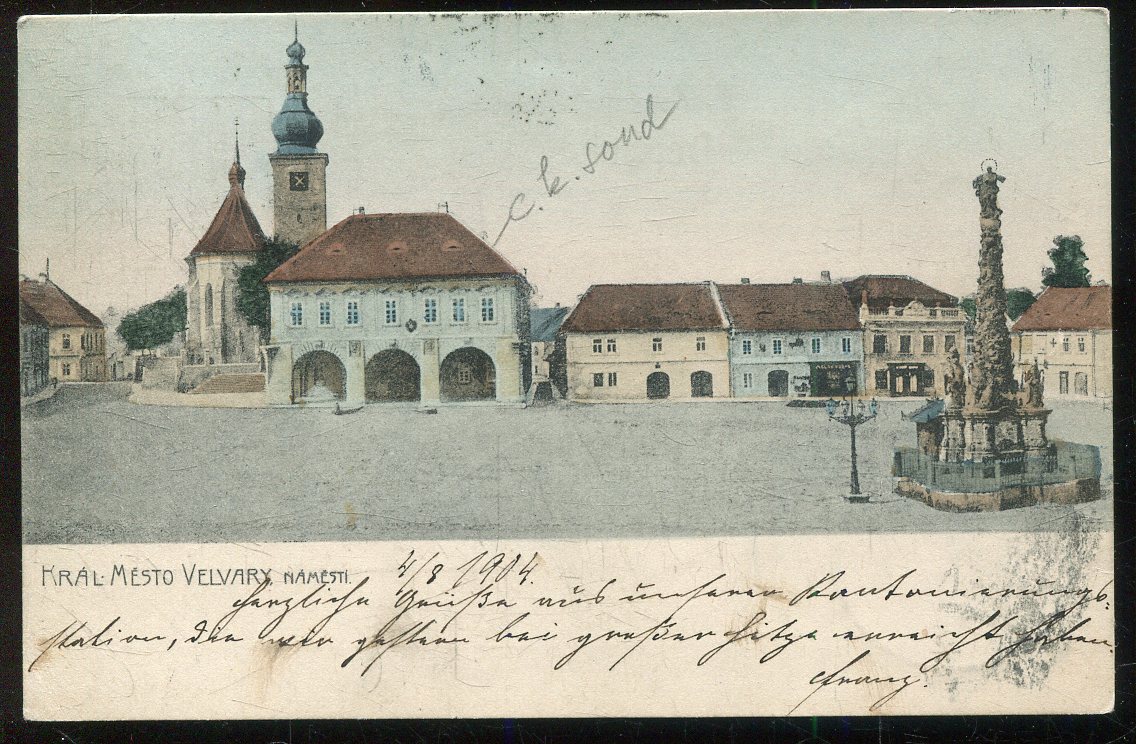 c. k. soud
KRÁL. MĚSTO VELVARY NÁMĚSTÍ.
4/8 1904.
Herzliche Grüße aus unserer Kantonierungs-
station, die wir gestern bei großer Hitze erreicht haben.
Franz.